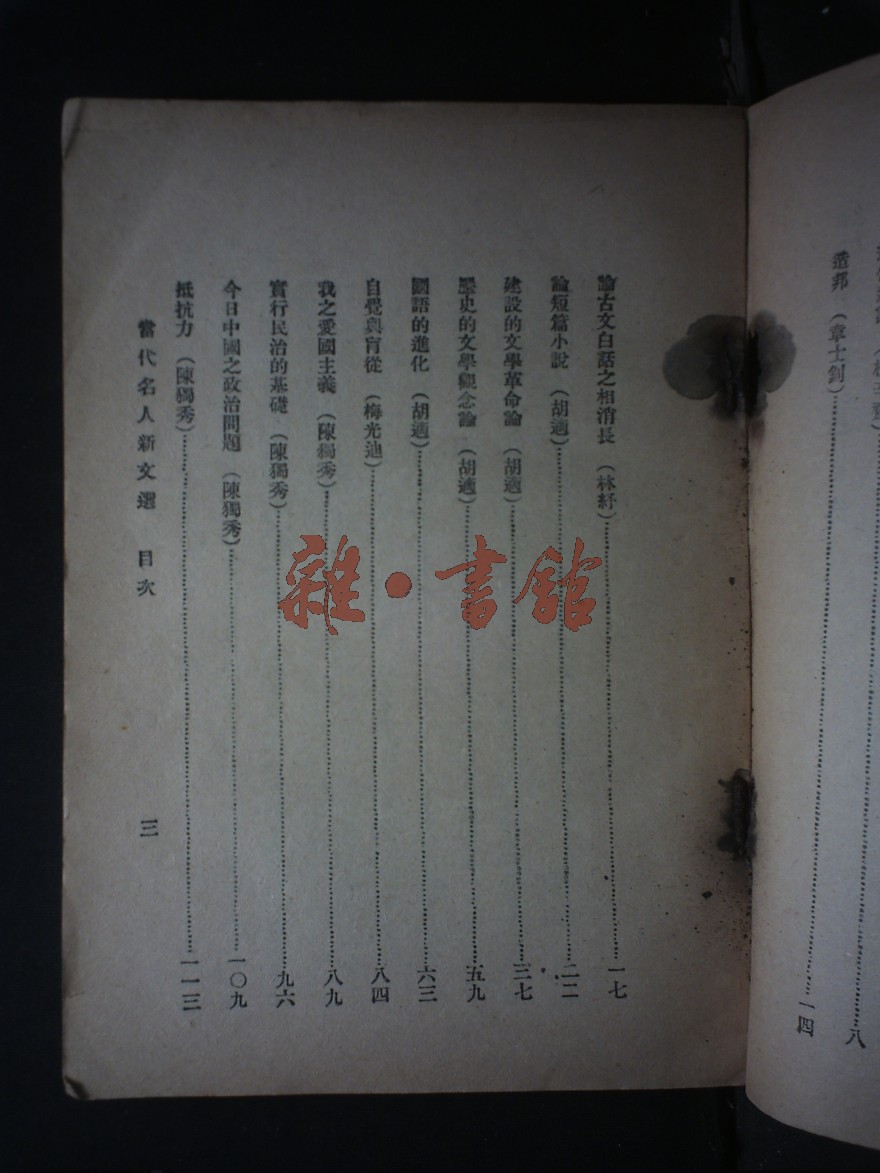 八
造邦 (章士釗) 一四
論古文白話之相消長 (林紓) 一七
論短篇小說 (胡適) 二二
建設的文學革命論 (胡適) 三七
歷史的文學觀念論 (胡適) 五九
國語的進化 (胡適) 六三
自覺與盲從 (梅光迪) 八四
我之愛國主義 (陳獨秀) 八九
實行民治的基礎 (陳獨秀) 九六
今日中國之政治問題 (陳獨秀) 一〇九
抵抗力 (陳獨秀) 一一三
當代名人新文選 目次 三
雜·書館